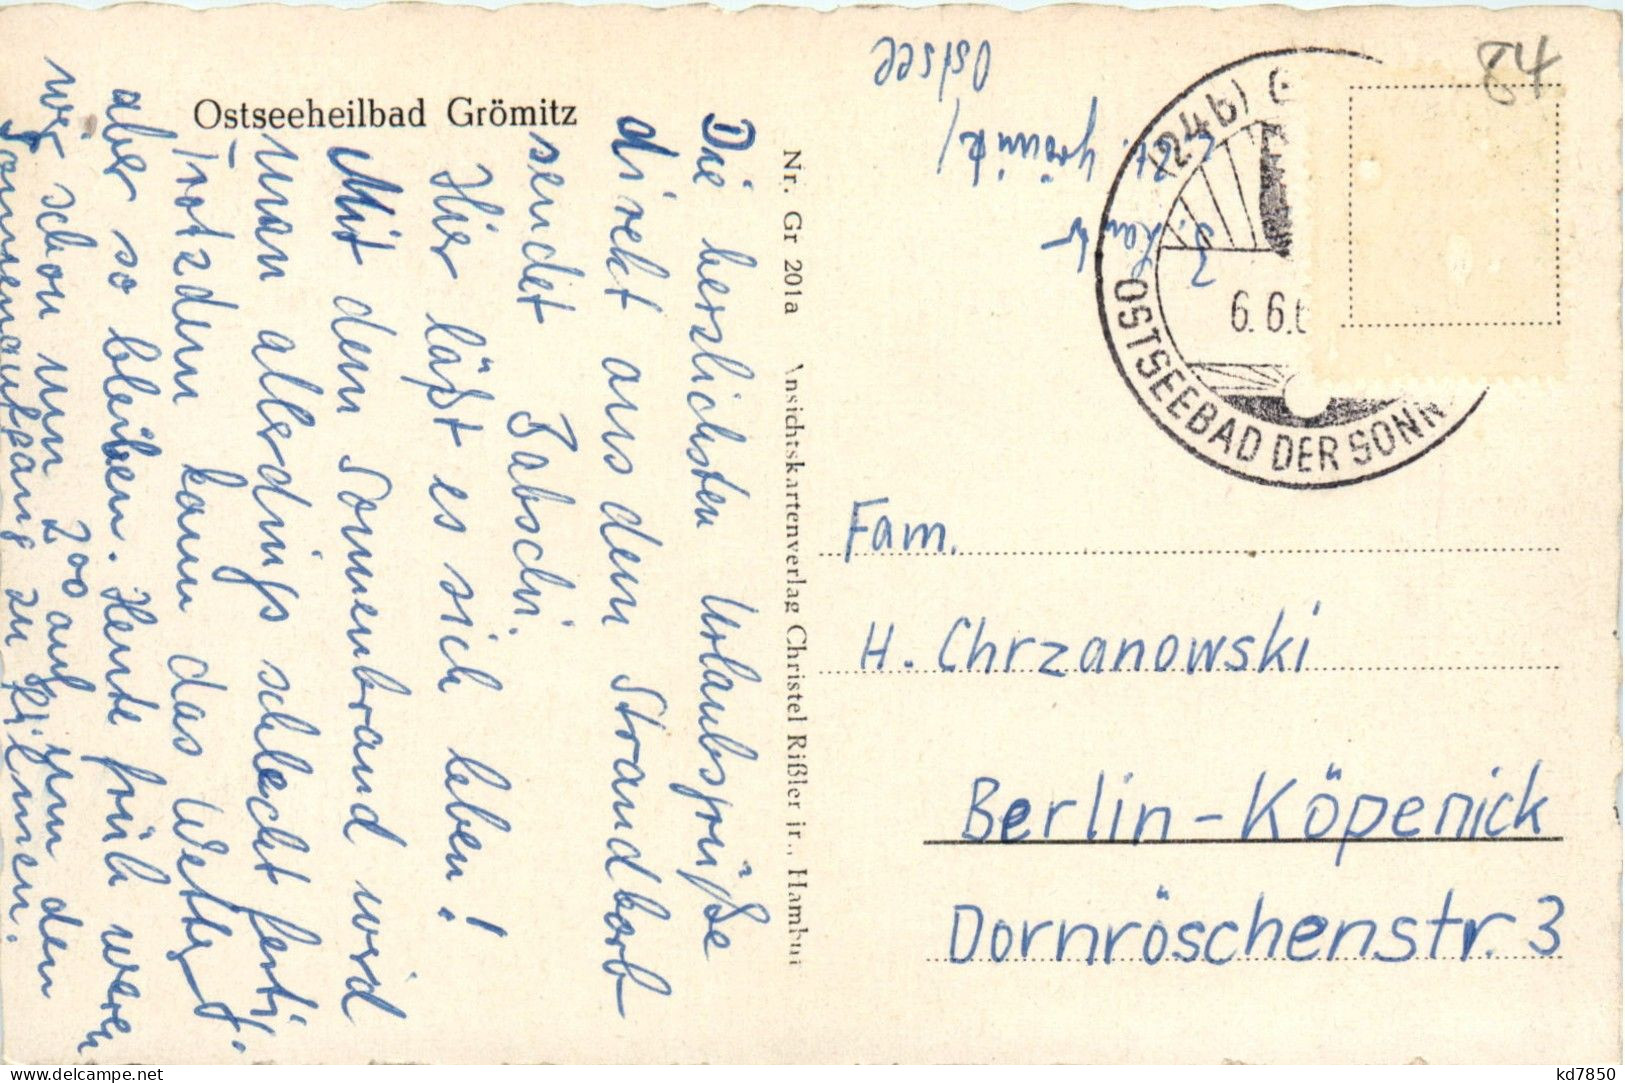 Ostseeheilbad Grömitz
Die herzlichsten Urlaubsgrüße
direkt aus dem Strandkorb
sendet Babschi.
Hier läßt es sich leben!
Mit dem Sonnenbrand wird
man allerdings schlecht fertig.
Trotzdem kann das Wetter
aber so bleiben. Heute früh waren
wir schon um 200 auf um den
Sonnenaufgang zu filmen.
Nr. Gr 201a Ansichtskartenverlag Christel Rißler jr., Hambur
Grömitz/
Ostsee
84
(24b) G
6.6.6
OSTSEEBAD DER SONN
Fam.
H. Chrzanowski
Berlin-Köpenick
Dornröschenstr. 3
kd7850